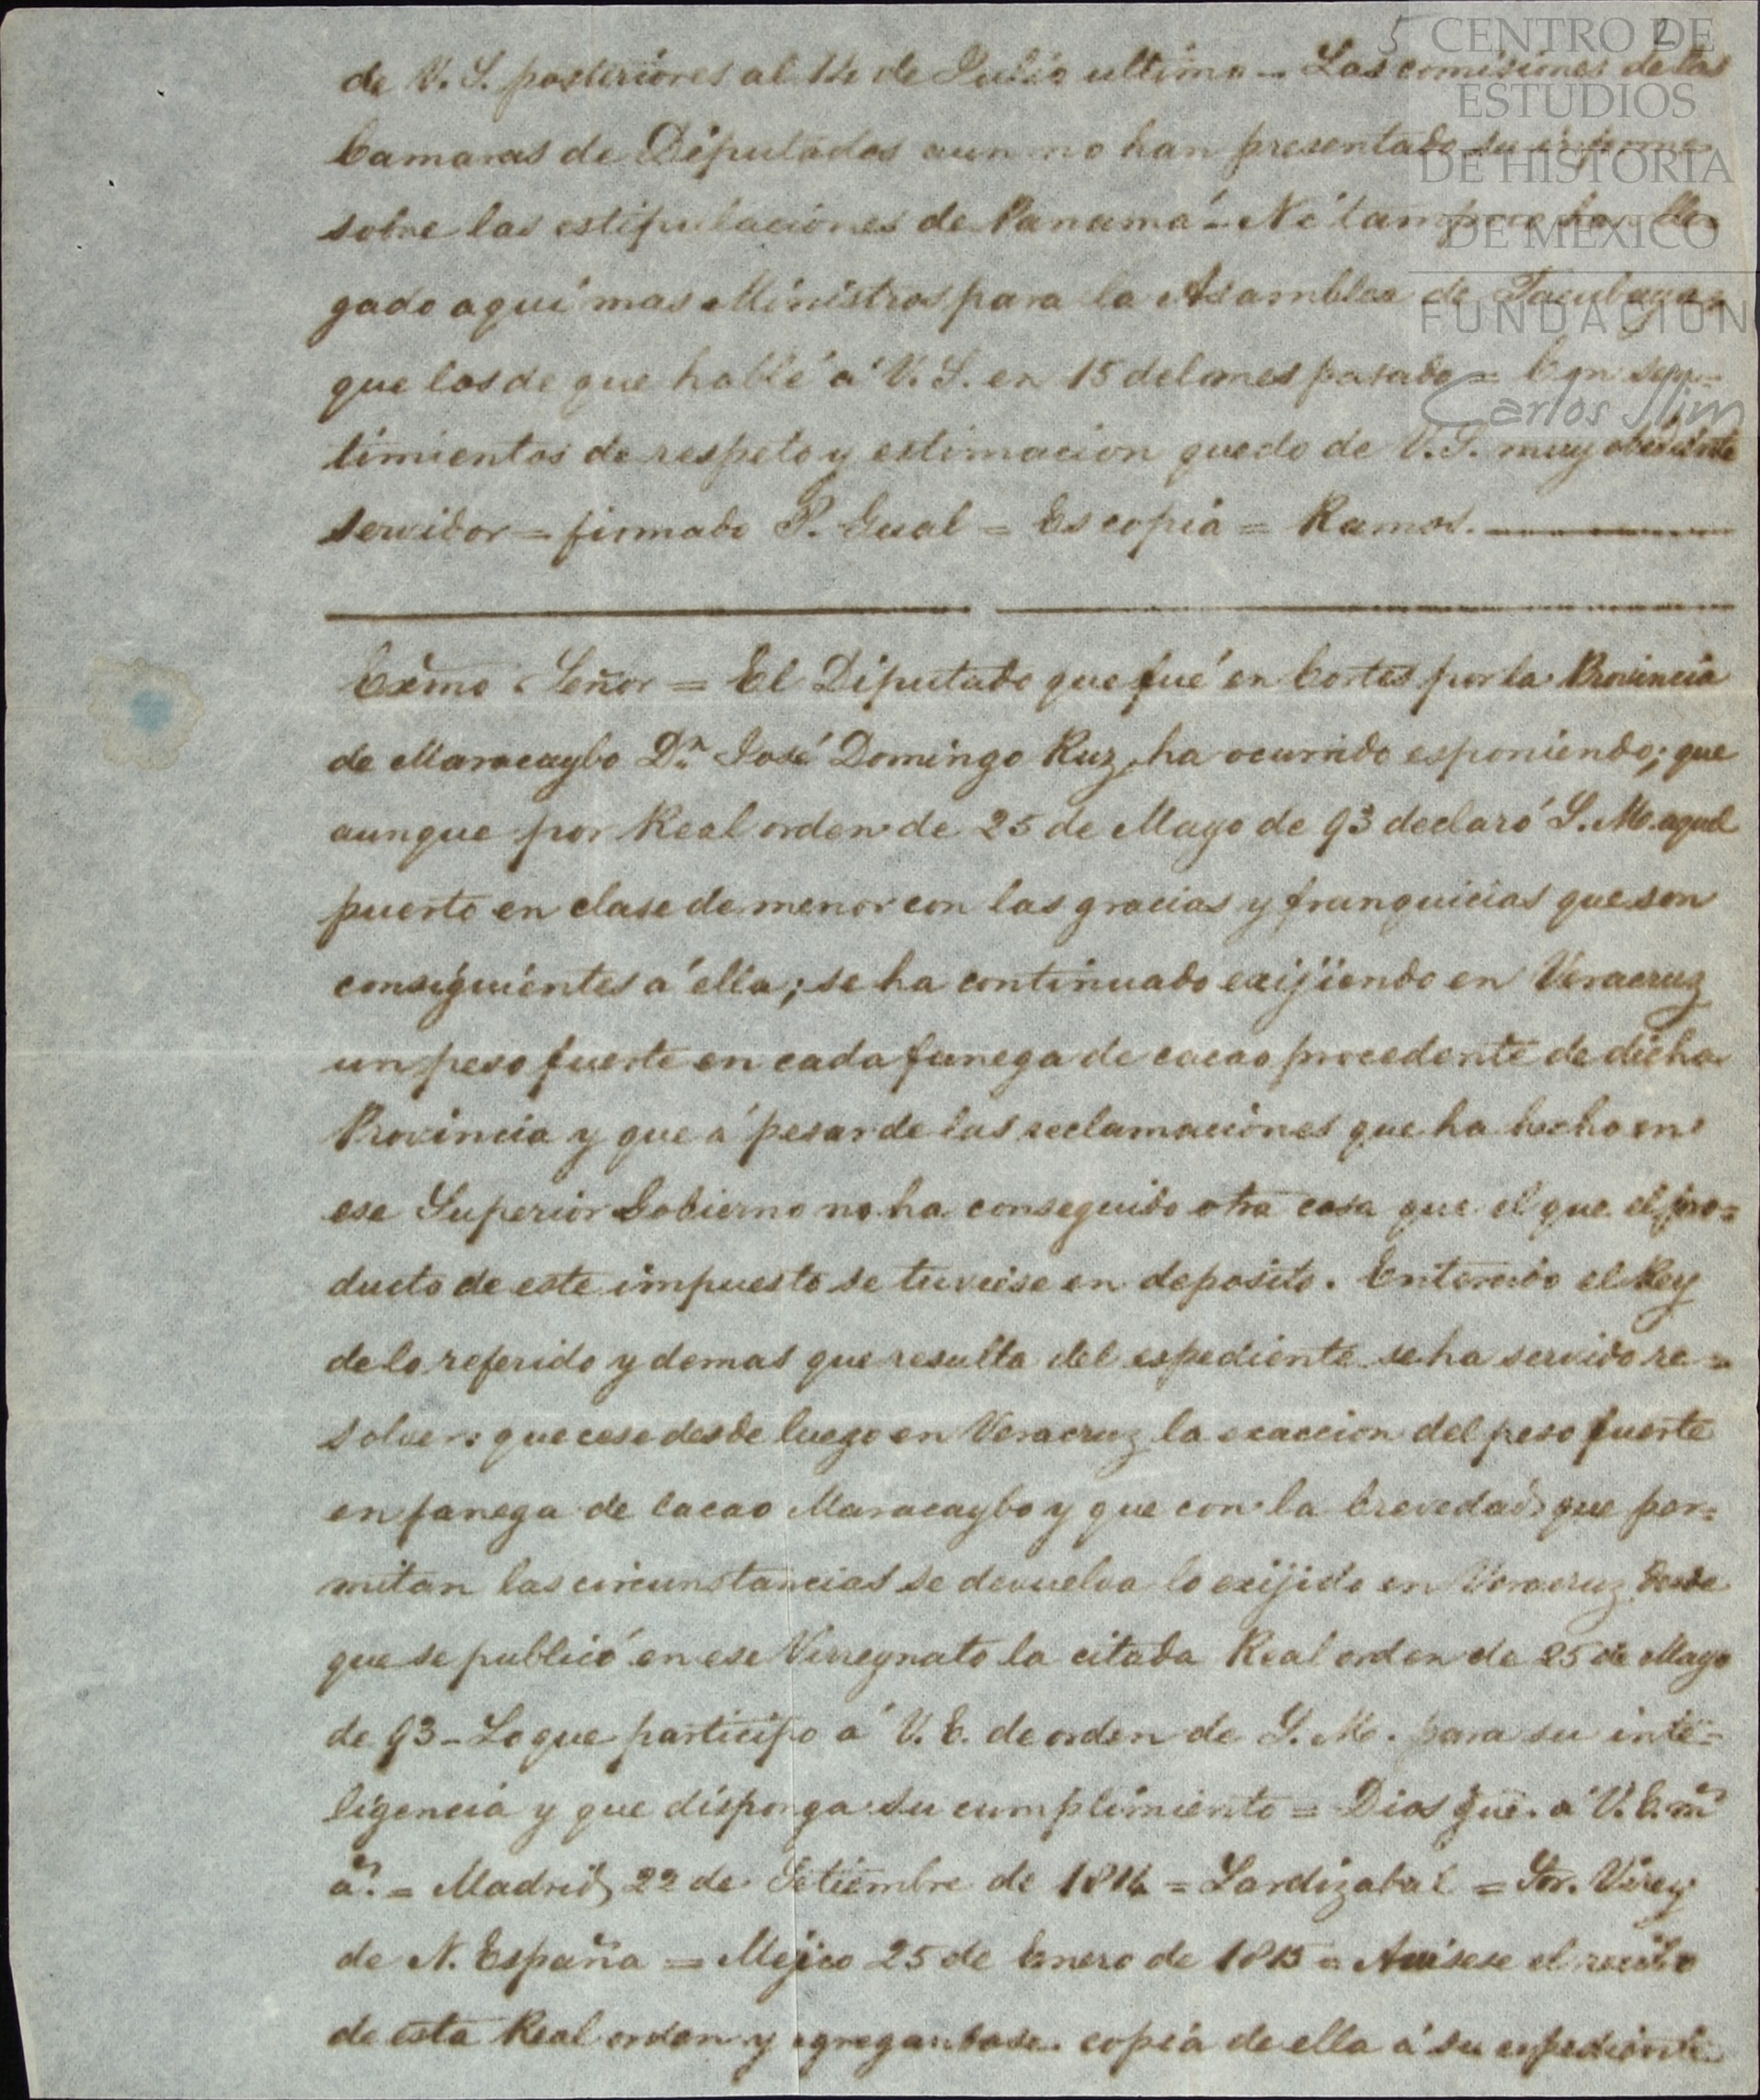 5 2
CENTRO DE
ESTUDIOS
DE HISTORIA
DE MEXICO
FUNDACION
Carlos Slim
de V. S. posteriores al 14 de Julio ultimo - Las comisiones de las
Camaras de Diputados aun no han presentado su informe
sobre las estipulaciones de Panamá - Ni tampoco han lle
gado aquí mas Ministros para la Asamblea de Tacubaya,
que los de que hablé á V. S. en 15 del mes pasado = Con sen=
timientos de respeto y estimacion quedo de V. S. muy obediente
servidor = firmado P. Gual = Es copia = Ramos.
Exmo Señor = El Diputado que fué en Cortes por la Provincia
de Maracaybo Dn. José Domingo Ruz, ha ocurrido esponiendo; que
aunque por Real orden de 25 de Mayo de 93 declaró S. M. aquel
puerto en clase de menor con las gracias y franquicias que son
consiguientes á ella; se ha continuado exijiendo en Veracruz
un peso fuerte en cada fanega de cacao procedente de dicha
Provincia y que á pesar de las reclamaciones que ha hecho en
ese Superior Gobierno no ha conseguido otra cosa que el que el pro=
ducto de este impuesto se tuviese en deposito. Enterado el Rey
de lo referido y demas que resulta del espediente se ha servido re=
solver: que cese desde luego en Veracruz la exaccion del peso fuerte
en fanega de Cacao Maracaybo y que con la brevedad que per=
mitan las circunstancias se devuelva lo exijido en Veracruz desde
que se publicó en ese Virreynato la citada Real orden de 25 de Mayo
de 93 - Lo que participo á V. E. de orden de S. M. para su inte=
ligencia y que disponga su cumplimiento = Dios gue. á V. E. ms
as. = Madrid 22 de Setiembre de 1814 = Lardizabal = Sor. Virey
de N. España = Mejico 25 de Enero de 1815 = Avisese el recibo
de esta Real orden y agregandose copia de ella á su espediente